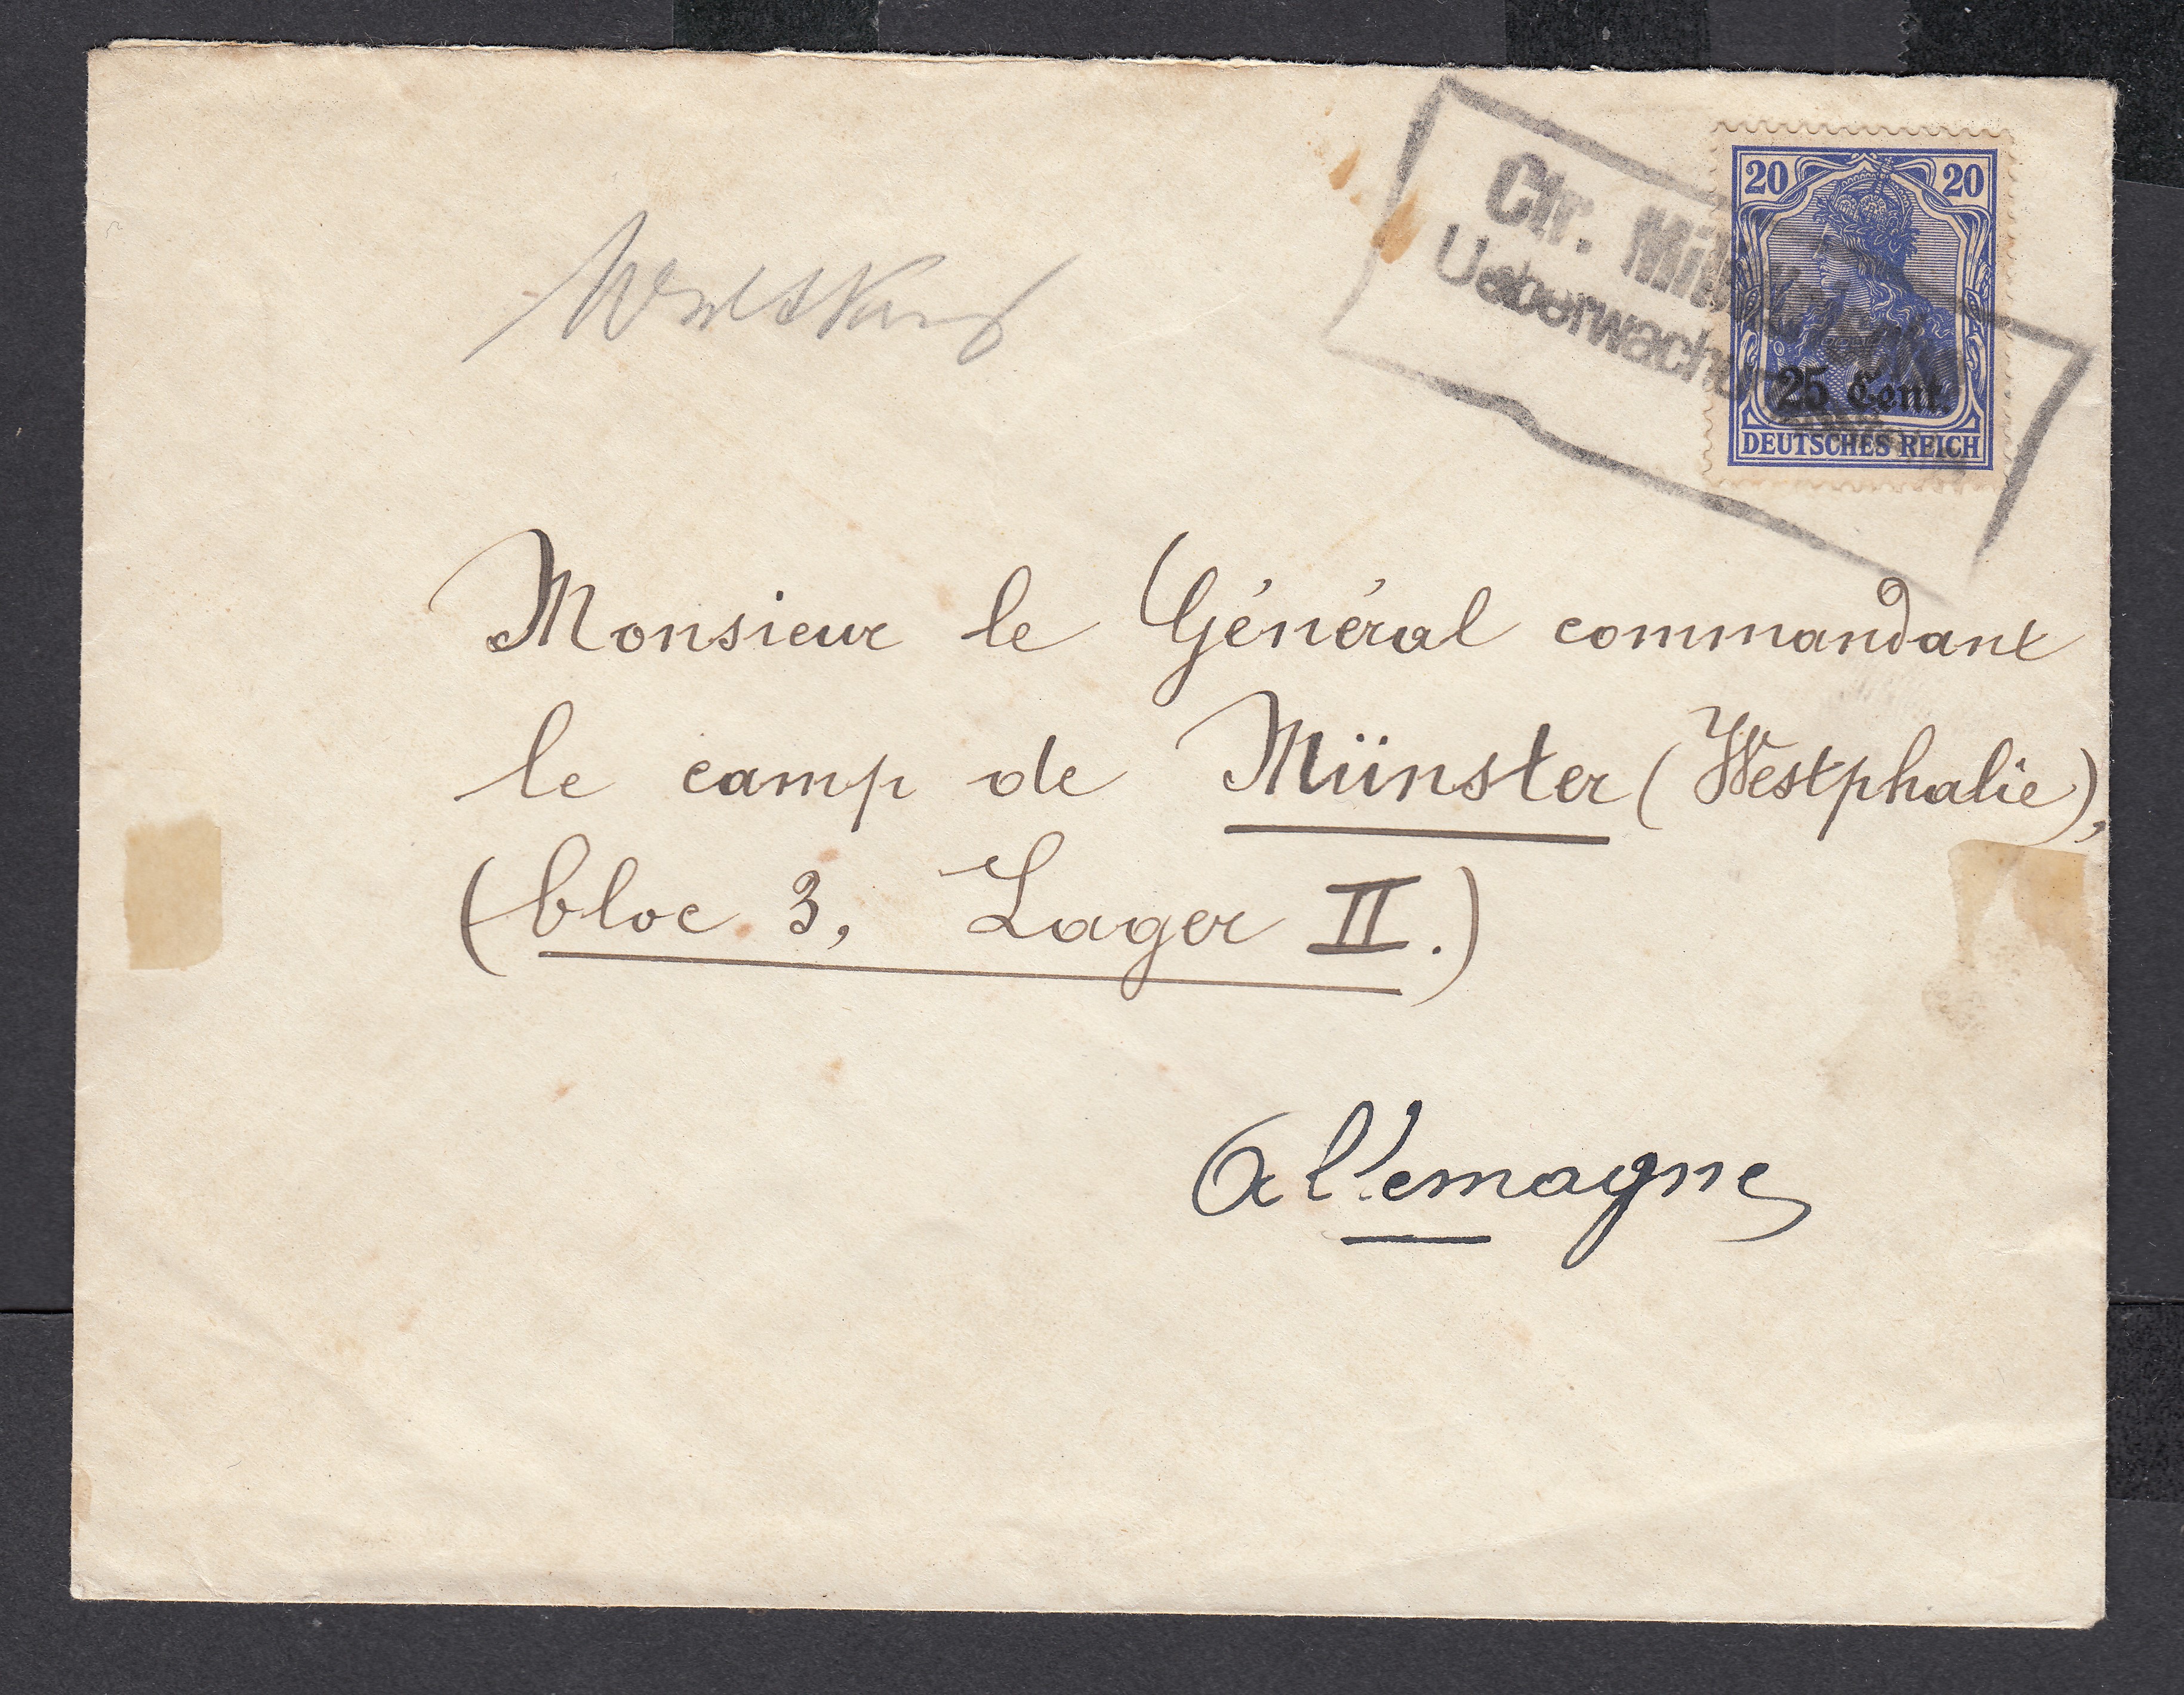 20 20
Ctr. Mil
Ueberwachu
25 Cent.
DEUTSCHES REICH
Monsieur le Général commandant
le camp de Münster (Westphalie),
(bloc 3, Lager II.)
Allemagne